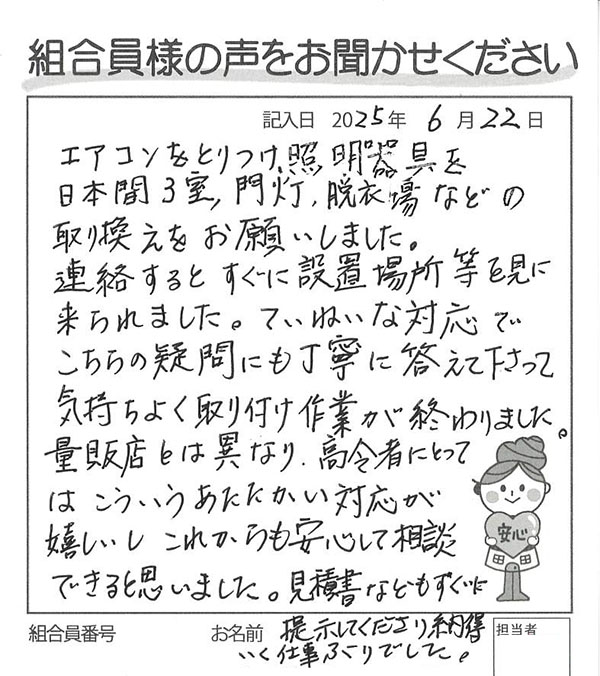 組合員様の声をお聞かせください
記入日 2025年 6月22日
エアコンをとりつけ、照明器具を
日本間3室、門灯、脱衣場などの
取り換えをお願いしました。
連絡するとすぐに設置場所等を見に
来られました。ていねいな対応で
こちらの疑問にも丁寧に答えて下さって
気持ちよく取り付け作業が終わりました。
量販店とは異なり、高令者にとって
はこういうあたたかい対応が
嬉しいし これからも安心して相談
できると思いました。見積書などもすぐに
安心
組合員番号 お名前 提示してくださり納得
いく仕事ぶりでした。
担当者